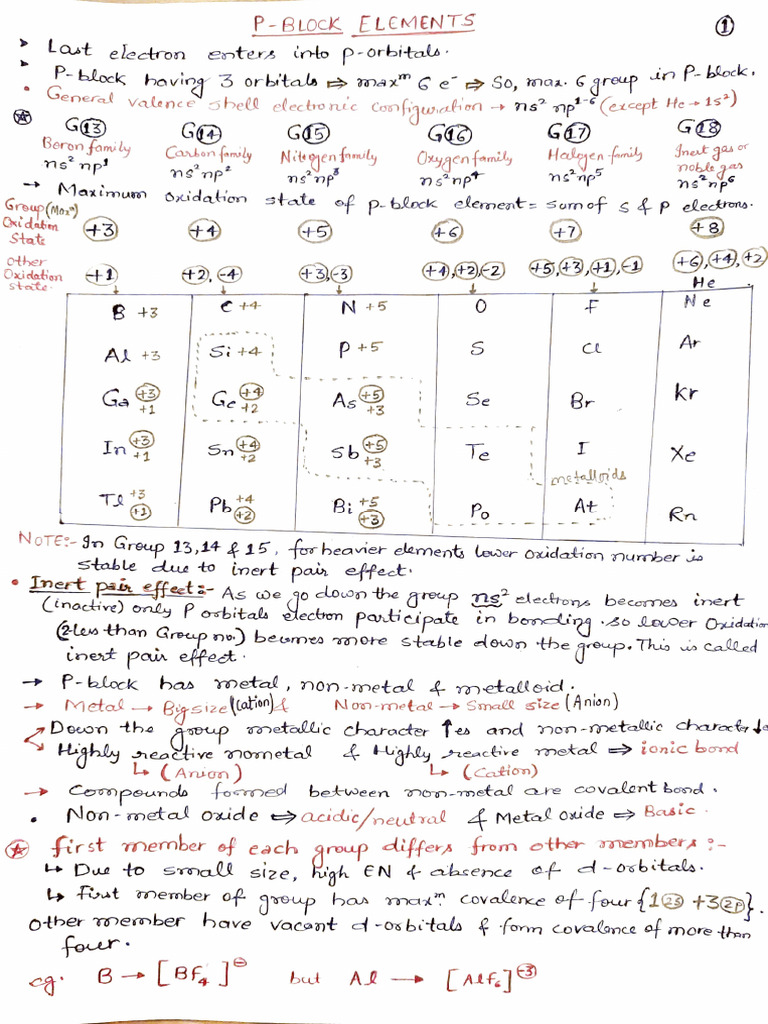 P-BLOCK ELEMENTS
①
➤ Last electron enters into p-orbitals.
➤ P-block having 3 orbitals ⇒ maxᵐ 6 e⁻ ⇒ So, max. 6 group in P-block.
• General valence shell electronic configuration → ns² np¹⁻⁶ (except He → 1s²)
G⑬ G⑭ G⑮ G⑯ G⑰ G⑱
Boron family Carbon family Nitogen family Oxygen family Halogen family Inert gas or noble gas
ns² np¹ ns² np² ns² np³ ns² np⁴ ns² np⁵ ns² np⁶
→ Maximum oxidation state of p-block element = sum of s & p electrons.
Group (Maxᵐ) Oxidation State +3 +4 +5 +6 +7 +8
other Oxidation state. +1 +2, -4 +3, -3 +4, +2, -2 +5, +3, +1, -1 +6, +4, +2
He
B +3 C +4 N +5 O F Ne
Al +3 Si +4 P +5 S Cl Ar
Ga +3 +1 Ge +4 +2 As +5 +3 Se Br Kr
In +3 +1 Sn +4 +2 Sb +5 +3 Te I Xe
metalloids
Tl +3 +1 Pb +4 +2 Bi +5 +3 Po At Rn
NOTE:- In Group 13, 14 & 15, for heavier elements lower oxidation number is
stable due to inert pair effect.
• Inert pair effect:- As we go down the group ns² electrons becomes inert
(inactive) only P orbitals electron participate in bonding. so lower Oxidation
(2 less than Group no.) becomes more stable down the group. This is called
inert pair effect.
→ P-block has metal, non-metal & metalloid.
→ Metal → Big size (Cation) & Non-metal → Small size (Anion)
Down the group metallic character ↑es and non-metallic character ↓e
Highly reactive nometal & Highly reactive metal ⇒ ionic bond
↳ (Anion) ↳ (Cation)
→ Compounds formed between non-metal are covalent bond.
• Non-metal oxide ⇒ acidic/neutral & Metal oxide ⇒ Basic.
first member of each group differs from other members:-
↳ Due to small size, high EN & absence of d-orbitals.
↳ first member of group has maxᵐ covalence of four {1 2s + 3 2p}.
Other member have vacant d-orbitals & form covalence of more than
four.
eg. B → [BF₄]⁻ but Al → [AlF₆]⁻³